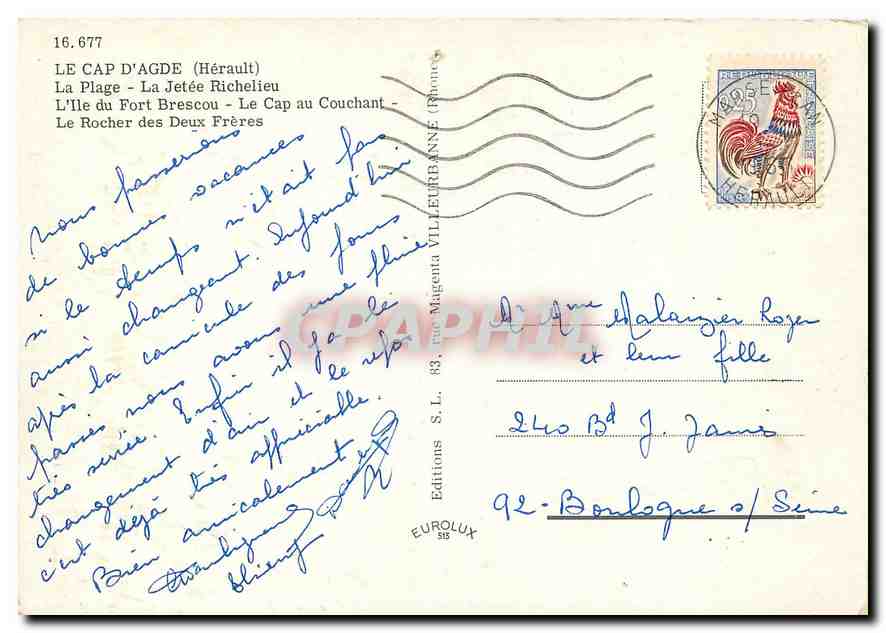 16.677
LE CAP D'AGDE (Hérault)
La Plage - La Jetée Richelieu
L'Ile du Fort Brescou - Le Cap au Couchant -
Le Rocher des Deux Frères
Nous passerions
de bonnes vacances
si le temps n'était pas
aussi changeant. Aujourd'hui
après la canicule des jours
passés nous avons une pluie
très serrée. Enfin il y a le
changement d'air et le repos
c'est déjà très appréciable.
Bien amicalement
Editions S. L. 83, rue Magenta VILLEURBANNE (Rhône)
EUROLUX
513
REPUBLIQUE FRANÇAISE
HERAULT
Mr Mme Malaizier Roger
et leur fille
240 Bd J. Jaurès
92 - Boulogne s/ Seine
CPAPHIL